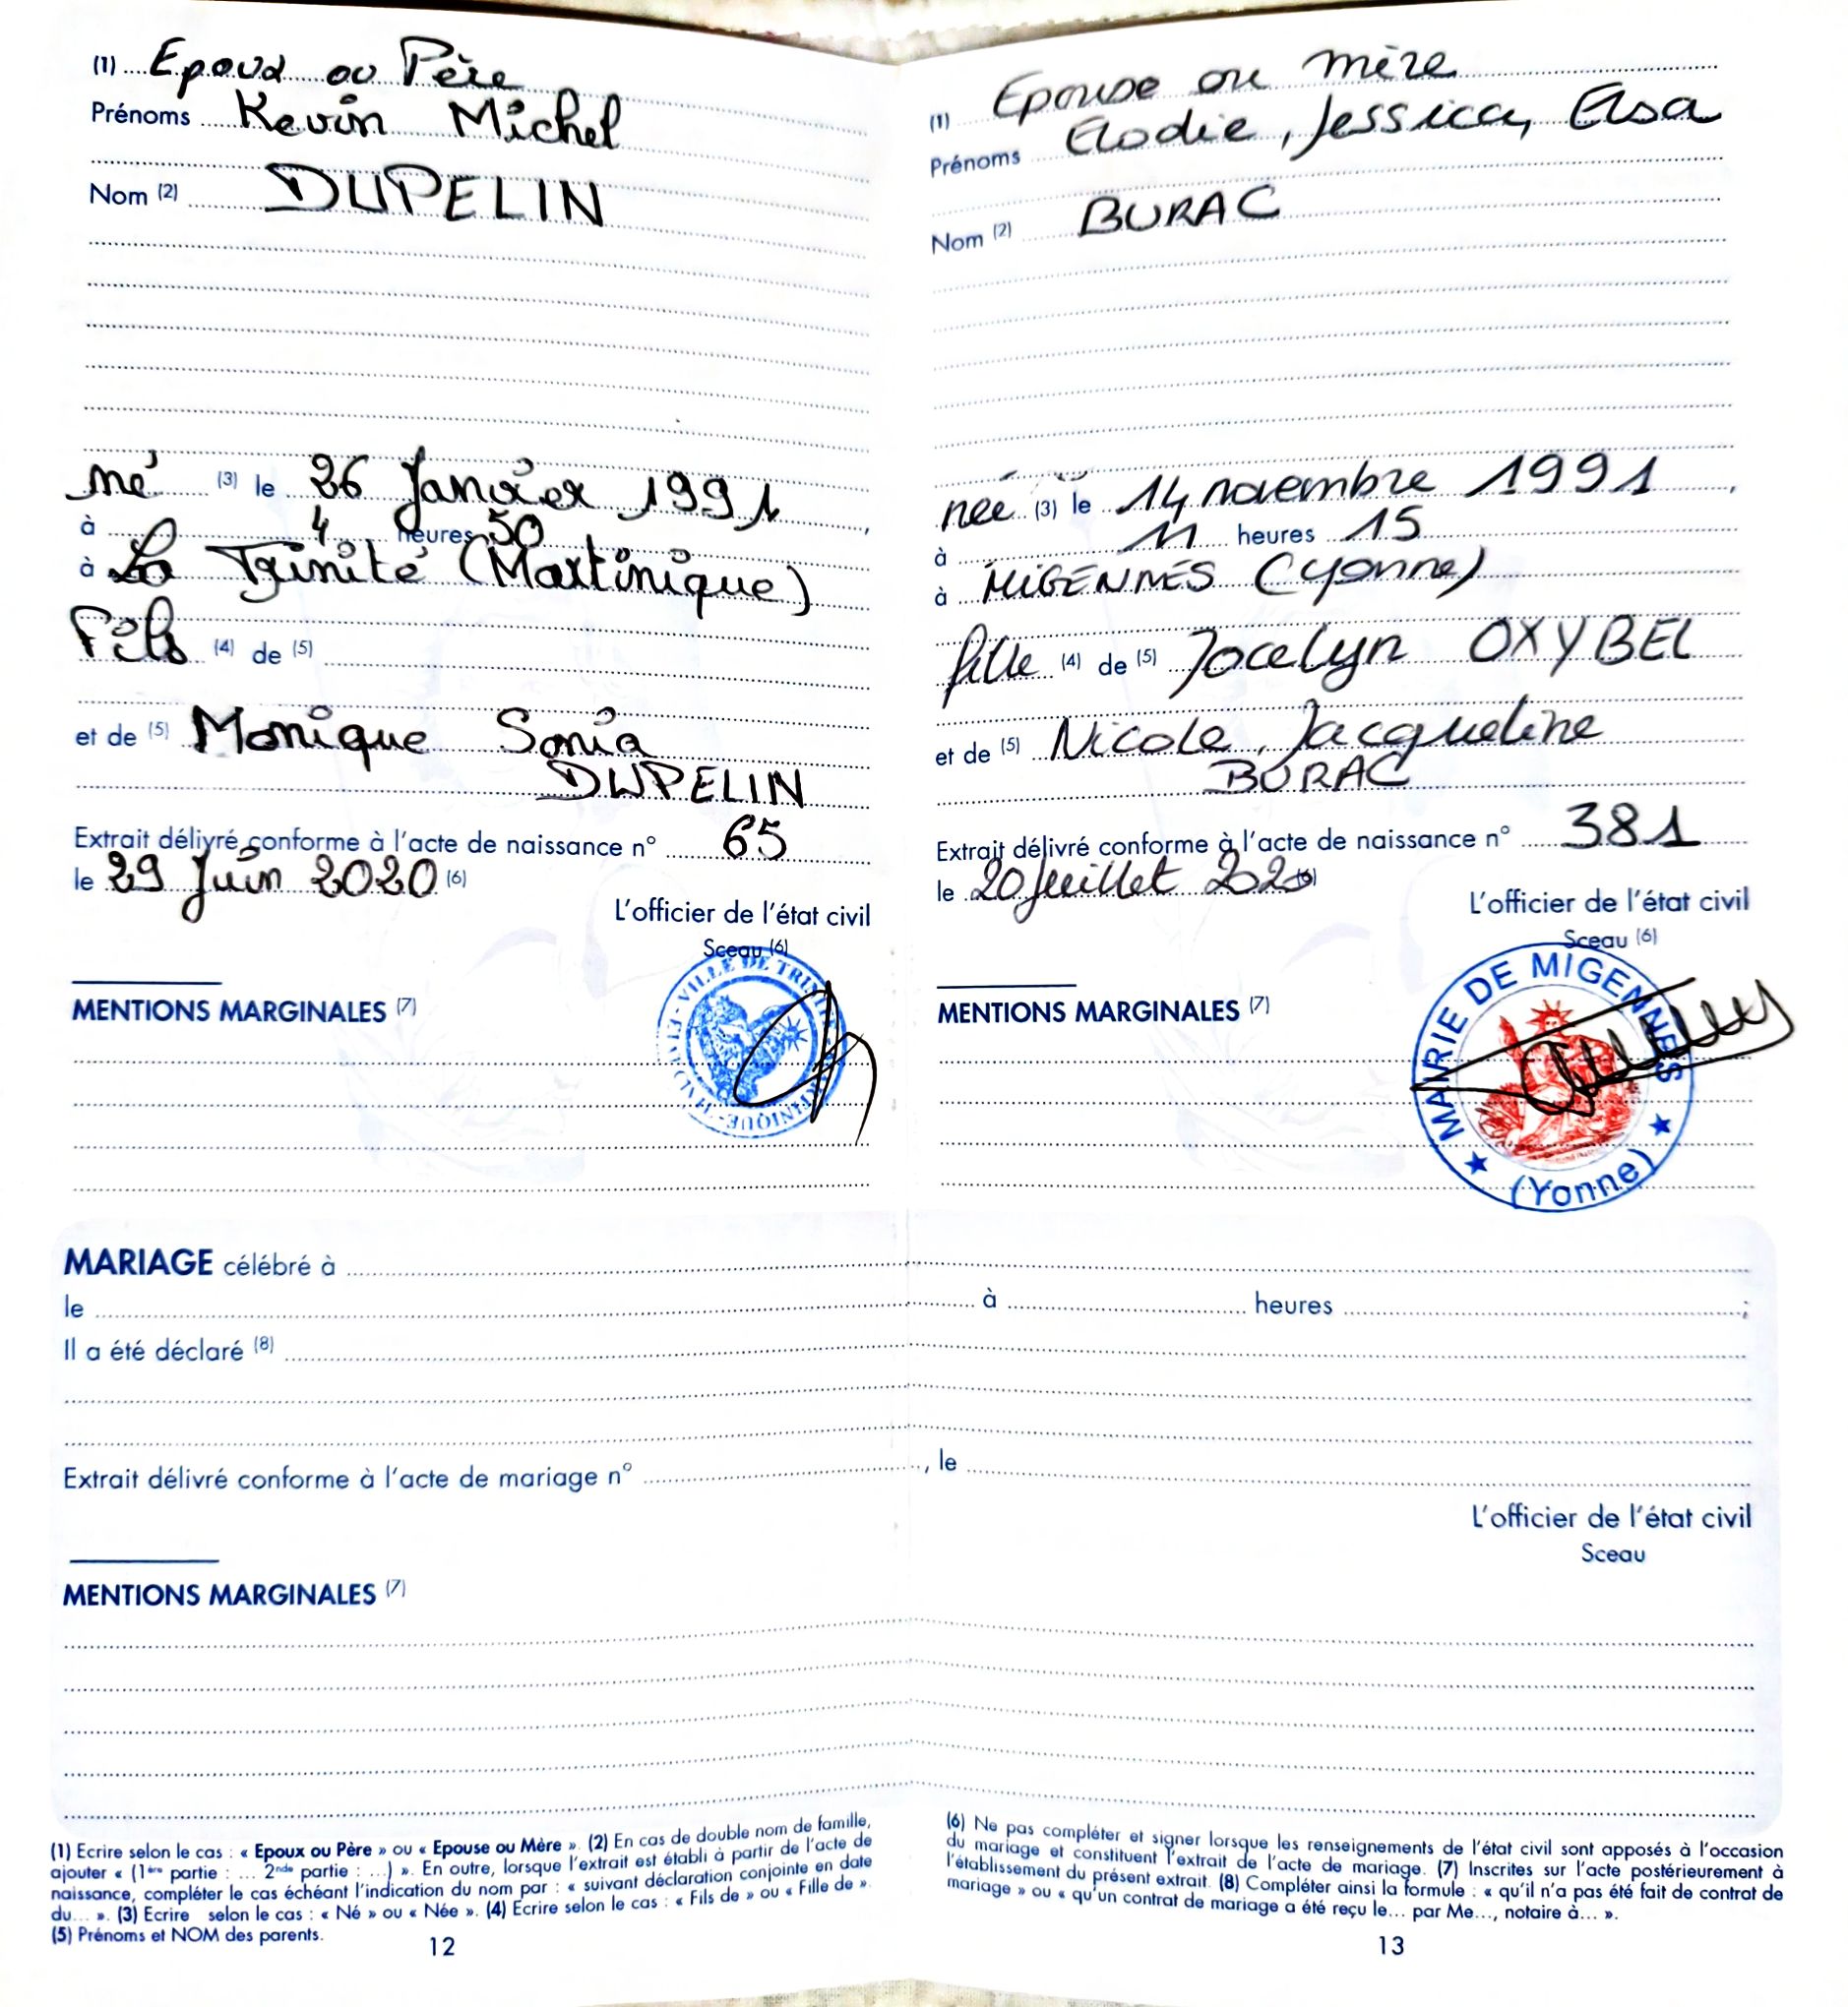 (1) Epoux ou Père
Prénoms Kevin Michel
Nom (2) DUPELIN
né (3) le 26 Janvier 1991,
à 4 heures 50
à La Trinité (Martinique)
Fils (4) de (5)
et de (5) Monique Sonia
DUPELIN
Extrait délivré conforme à l'acte de naissance n° 65
le 29 Juin 2020 (6)
L'officier de l'état civil
Sceau (6)
VILLE DE TRINITÉ
MENTIONS MARGINALES (7)
(1) Epouse ou mère
Prénoms Elodie, Jessica, Elsa
Nom (2) BURAC
née (3) le 14 novembre 1991,
à 11 heures 15
à MIGENNES (Yonne)
fille (4) de (5) Jocelyn OXYBEL
et de (5) Nicole, Jacqueline
BURAC
Extrait délivré conforme à l'acte de naissance n° 381
le 20 juillet 2020 (6)
L'officier de l'état civil
Sceau (6)
MAIRIE DE MIGENNES
(Yonne)
MENTIONS MARGINALES (7)
MARIAGE célébré à
le à heures ;
Il a été déclaré (8)
Extrait délivré conforme à l'acte de mariage n° , le
L'officier de l'état civil
Sceau
MENTIONS MARGINALES (7)
(1) Ecrire selon le cas : « Epoux ou Père » ou « Epouse ou Mère ». (2) En cas de double nom de famille,
ajouter « (1ère partie : ... 2nde partie : ...) ». En outre, lorsque l'extrait est établi à partir de l'acte de
naissance, compléter le cas échéant l'indication du nom par : « suivant déclaration conjointe en date
du... ». (3) Ecrire selon le cas : « Né » ou « Née ». (4) Ecrire selon le cas : « Fils de » ou « Fille de ».
(5) Prénoms et NOM des parents.
12
(6) Ne pas compléter et signer lorsque les renseignements de l'état civil sont apposés à l'occasion
du mariage et constituent l'extrait de l'acte de mariage. (7) Inscrites sur l'acte postérieurement à
l'établissement du présent extrait. (8) Compléter ainsi la formule : « qu'il n'a pas été fait de contrat de
mariage » ou « qu'un contrat de mariage a été reçu le... par Me..., notaire à... ».
13